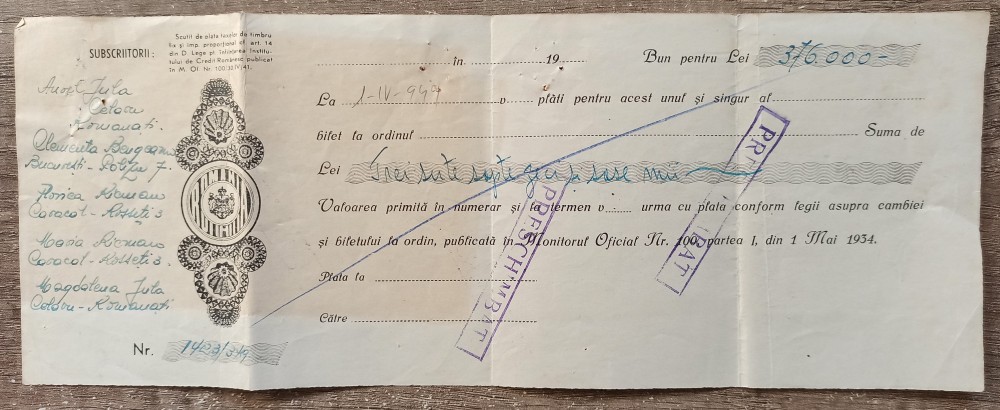 SUBSCRIITORII:
Scutit de plata taxelor de timbru
fix și imp. proporțional cf. art. 14
din D. Lege pt. înființarea Institu-
tului de Credit Românesc publicat
în M. Of. Nr. 100/30/IV/41.
Jula
Romanați.
Clementa
București - 7.
Florica
Caracal - Rosseti 3
Maria Romano
Caracal - Rosseti 3.
Magdalena Jula
Romanați
Nr. 1423/349
în 19 Bun pentru Lei 376.000-
La 1-IV-949 v plăti pentru acest unul și singur al
bilet la ordinul Suma de
Lei Trei sute șapte zeci și șase mii
Valoarea primită în numerar și la termen v urma cu plata conform legii asupra cambiei
și biletului la ordin, publicată în Monitorul Oficial Nr. 100, partea I, din 1 Mai 1934.
Plata la
Către
PRESCHIMBAT